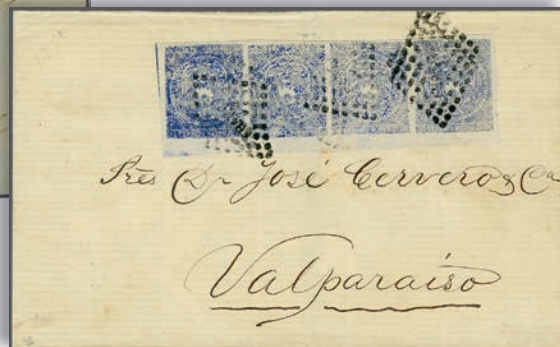 Srés Dn José Cervero & Ca
Valparaíso